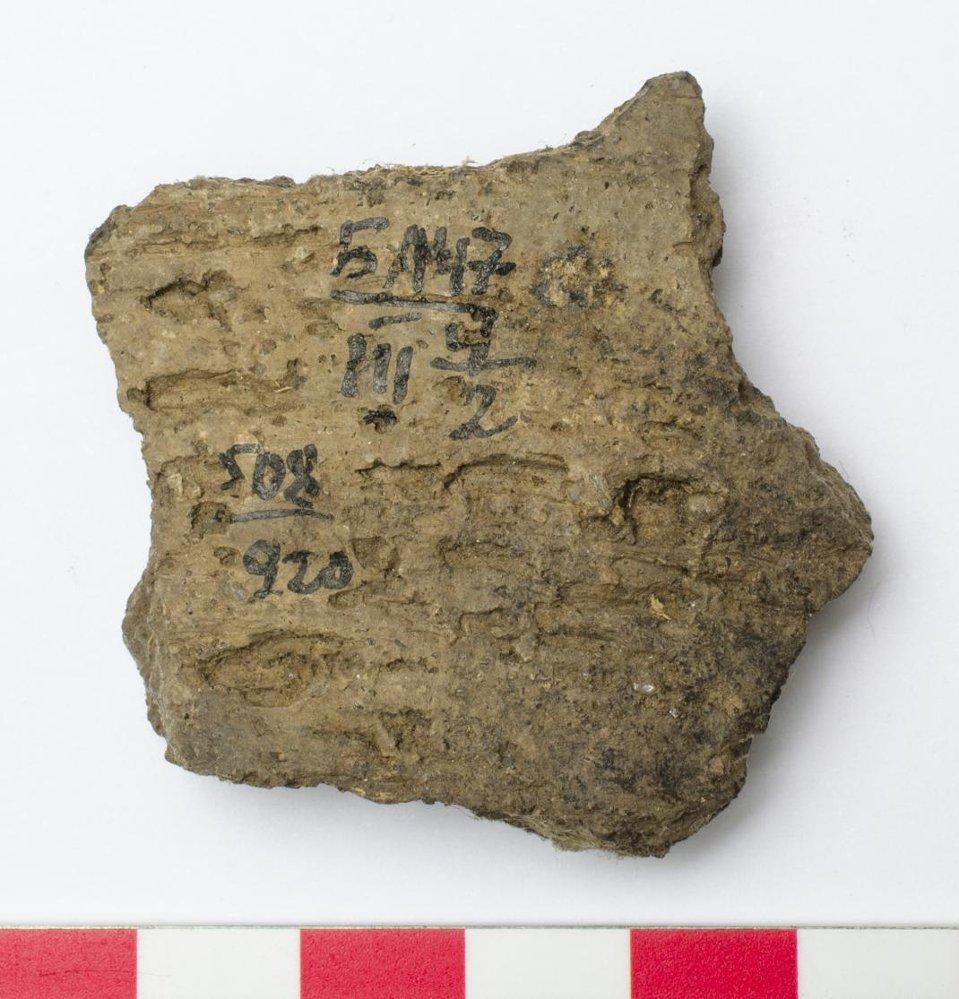 БМ47
III 4/2
508
920